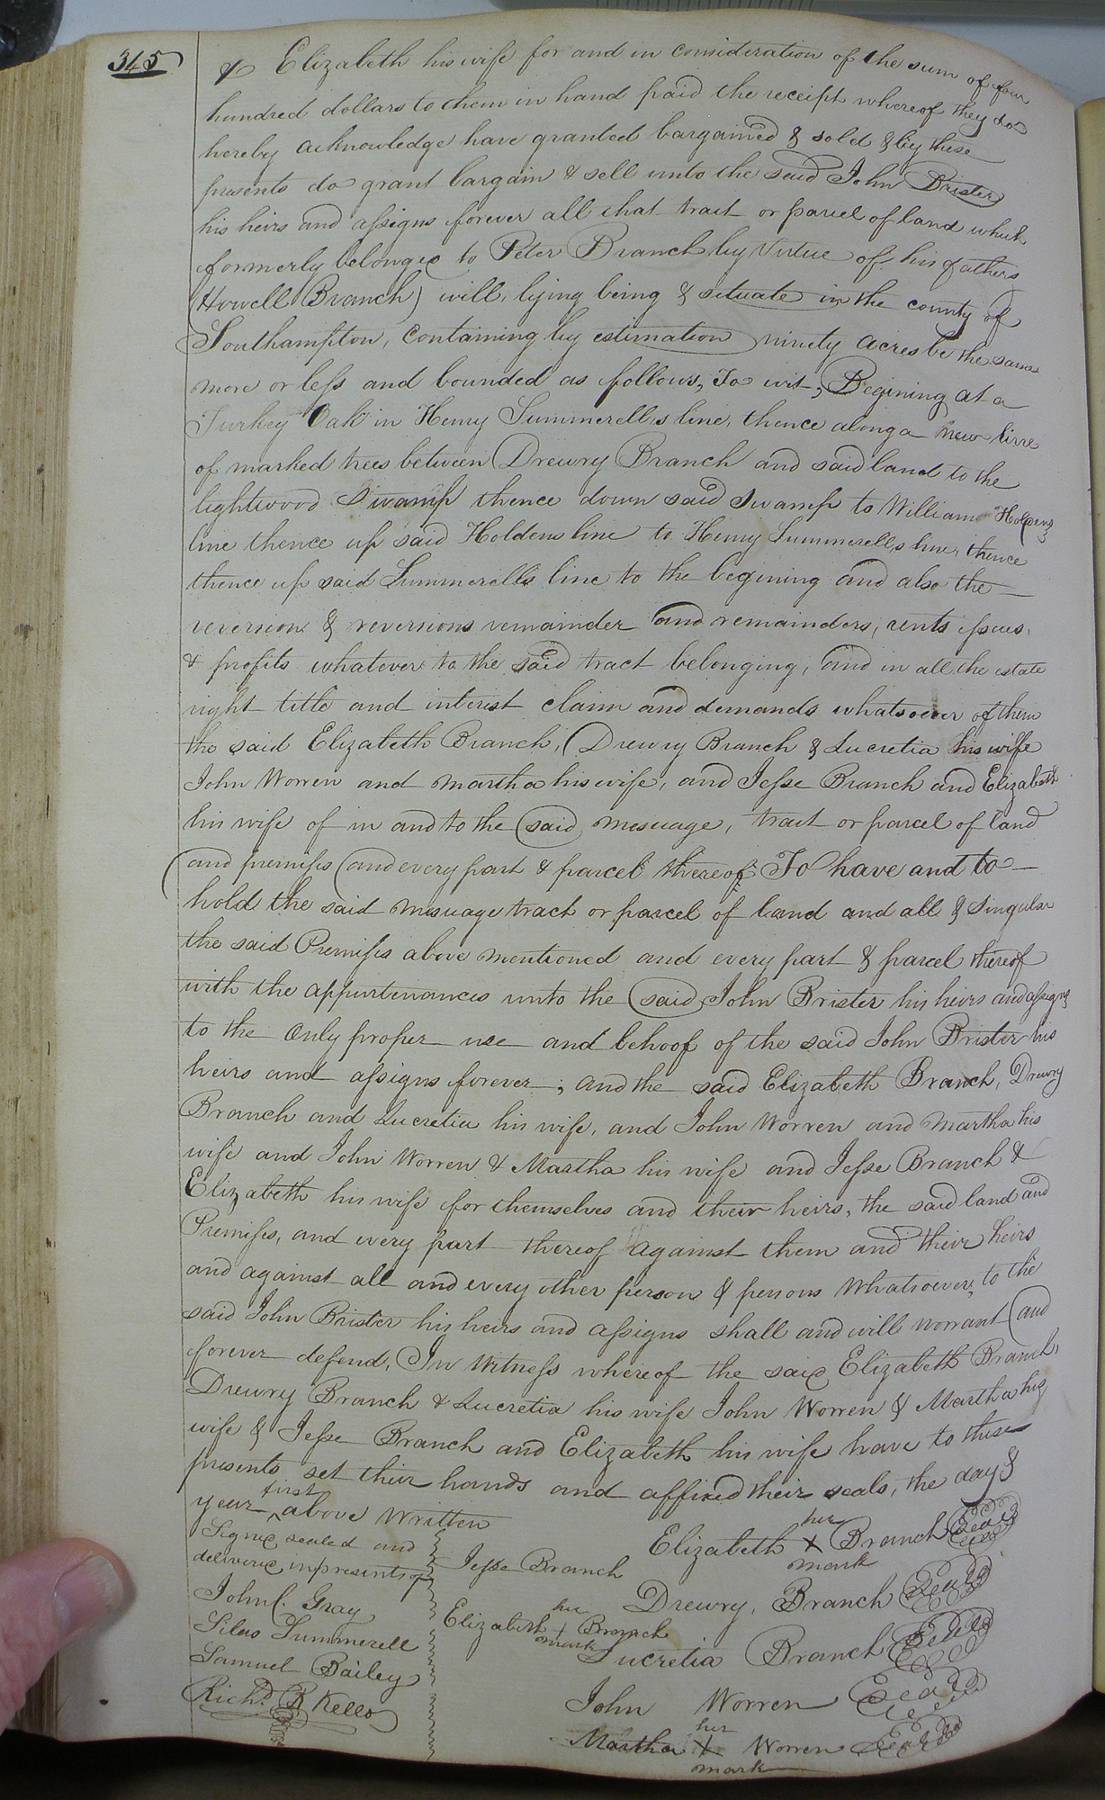 345
& Elizabeth his wife for and in consideration of the sum of four
hundred dollars to them in hand paid the receipt whereof they do
hereby acknowledge have granted bargained & sold & by these
presents do grant bargain & sell unto the said John Brister
his heirs and assigns forever all that tract or parcel of land which
formerly belonged to Peter Branch by Virtue of his fathers
(Howell Branch) will, lying being & situate in the county of
Southampton, containing by estimation ninety acres be the same
more or less and bounded as follows, To wit, Begining at a
Turkey Oak in Henry Summerell,s line, thence along a new line
of marked trees between Drewry Branch and said land to the
lightwood Swamp thence down said Swamp to William Holdens
line thence up said Holdens line to Henry Summerell,s line, thence
thence up said Summerell's line to the begining and also the
reversion & reversions remainder and remainders, rents issues,
& profits whatever to the said tract belonging, and in all the estate
right title and interist claim and demands whatsoever of them
the said Elizabeth Branch, Drewry Branch & Lucretia his wife
John Worren and Martha his wife, and Jesse Branch and Elizabeth
his wife of in and to the said mesuage, tract or parcel of land
and premises and every part & parcel thereof; To have and to
hold the said mesuage tract or parcel of land and all & Singular
the said Premises above mentioned and every part & parcel thereof
with the appurtenances unto the said John Brister his heirs and assigns
to the only proper use and behoof of the said John Brister his
heirs and assigns forever; and the said Elizabeth Branch, Drewry
Branch and Lucretia his wife, and John Worren and Martha his
wife and John Worren & Martha his wife and Jesse Branch &
Elizabeth his wife for themselves and their heirs, the said land and
Premises, and every part thereof against them and their heirs
and against all and every other person & persons Whatsoever, to the
said John Brister his heirs and assigns shall and will worrant and
forever defend, In Witness whereof the said Elizabeth Branch,
Drewry Branch & Lucretia his wife John Worren & Martha his
wife & Jesse Branch and Elizabeth his wife have to these
presents set their hands and affixed their seals, the day &
year first above Written
Signed sealed and
delivered in presents of
John C. Gray
Silas Summerell
Samuel Bailey
Richd. B Kello
Jesse Branch
Elizabeth her + mark Branch
Elizabeth her X mark Branch Seal
Seal
Drewry, Branch Seal
Lucretia Branch Seal
John Worren Seal
Martha her X mark Worren Seal